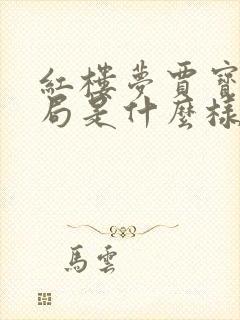 紅樓夢賈寶
局是什麼樣
馬雲